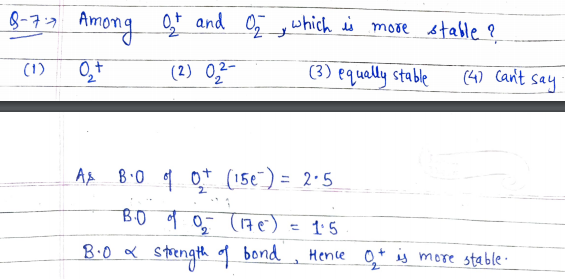 Q-7→ Among O₂⁺ and O₂⁻, which is more stable?
(1) O₂⁺ (2) O₂²⁻ (3) equally stable (4) Can't say
As B.O of O₂⁺ (15e⁻) = 2.5
B.O of O₂⁻ (17e⁻) = 1.5
B.O ∝ strength of bond, Hence O₂⁺ is more stable.